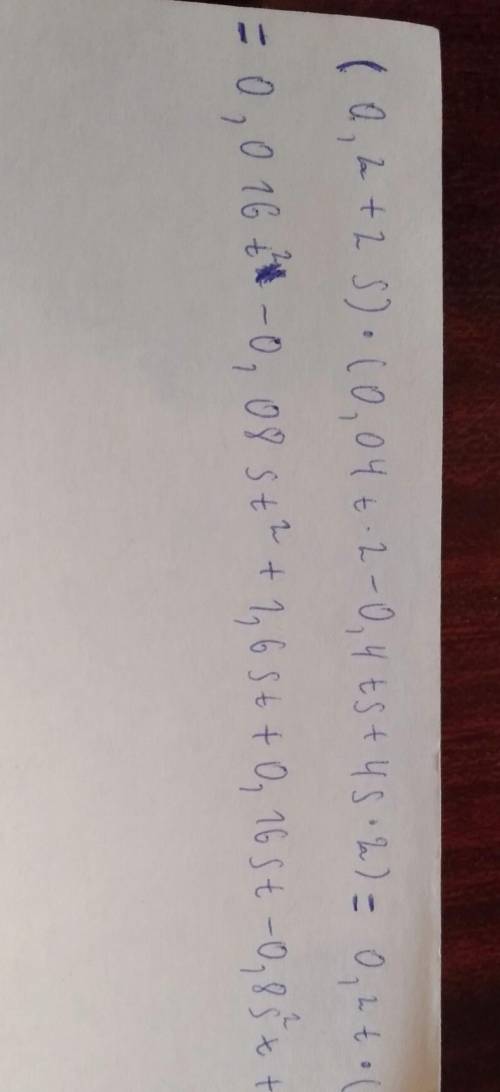 (0,2+2s)·(0,04t·2-0,4ts+4s·2)=0,2t·(
=0,016t²-0,08st²+1,6st+0,16st-0,8s²x+